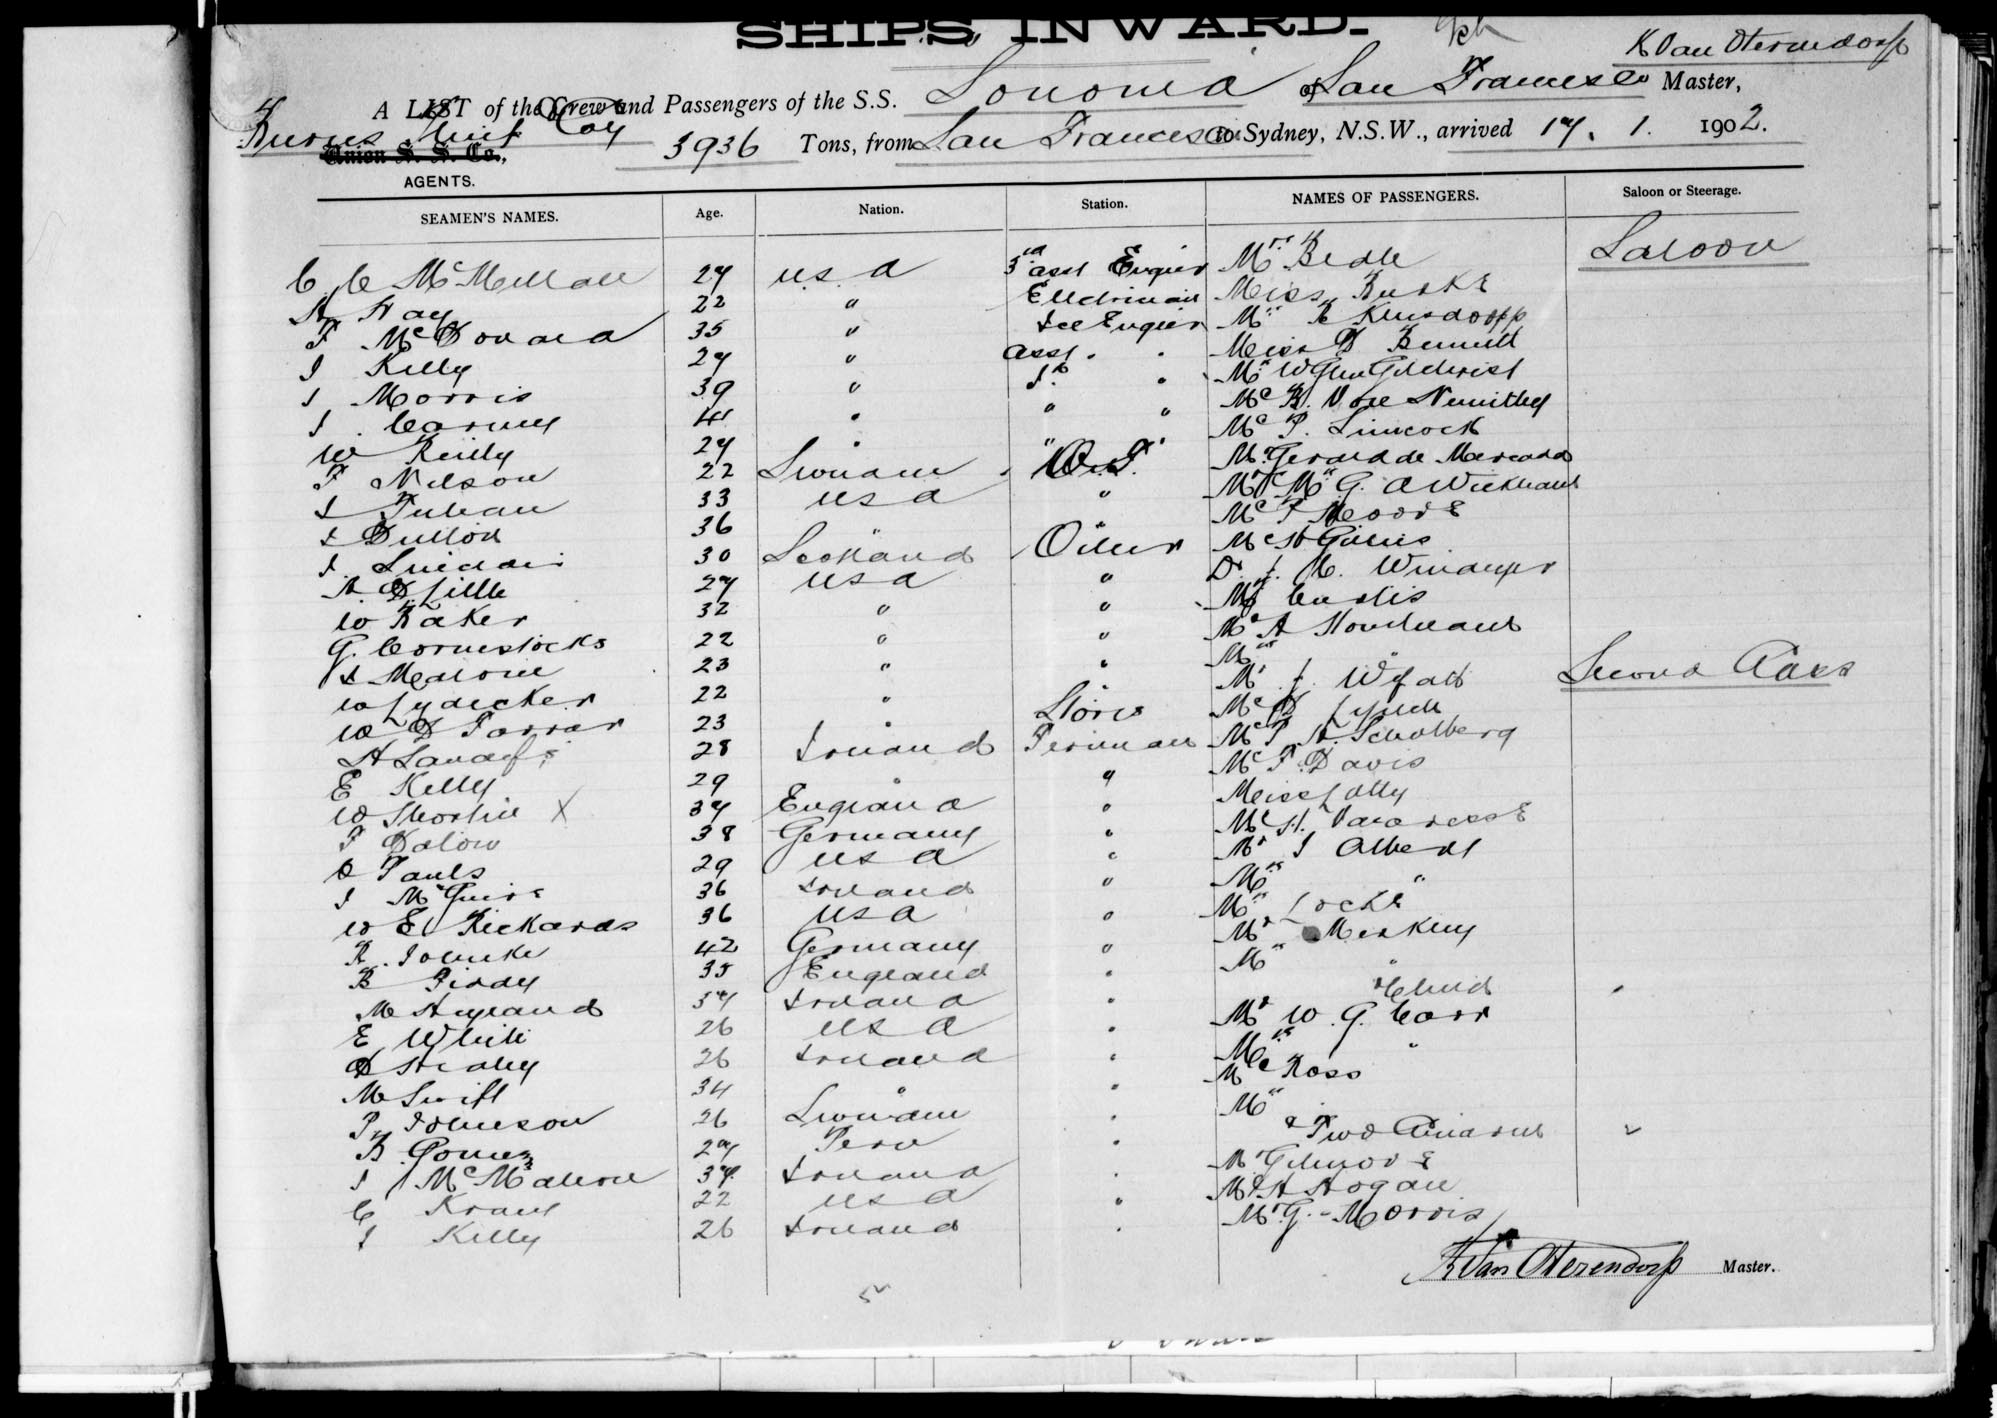 SHIPS INWARD.
K Van Oterendorp
A LIST of the Crew and Passengers of the S.S. Sonoma of San Francisco Master,
Burns Philp Coy
Union S. S. Co.,
3936 Tons, from San Francisco to Sydney, N.S.W., arrived 17. 1. 1902.
AGENTS.
SEAMEN'S NAMES. Age. Nation. Station. NAMES OF PASSENGERS. Saloon or Steerage.
Saloon
C C McMillan 27 U.S.A 3rd asst Engier Mrs Beale
Hay 22 " Miss Burke
F McDonald 35 " Ice Engier Mrs
J Kelly 27 " asst. . Miss B Bennett
J Morris 39 " . Mr W Glen Gilchrist
J Carney 41 " " " Mr
W Reilly 27 " " Mr P.
F Nilson 22 Sweden W.T. Mr Gerald de
J 33 USA " Mr & Mrs G. A Wickham
J Dillon 36 " Mr T Moore
J 30 Scotland Oiler Mr H Gillies
27 USA " Dr
W Baker 32 " " Curtis
G. Comestocks 22 " " Mr A
J Malone 23 " " Mrs "
W Lydecker 22 " Mr J. Wyatt Second Class
W D Farrar 23 " Stors Mr D Lynch
H 28 Ireland Fireman Mr P. H. Scholberg
E Kelly 29 " " Mr T. Davis
W X 37 England " Miss Jolly
F 38 Germany " Mr H.
O Pauls 29 USA " Mr J Albert
J McGuire 36 Ireland " Mrs "
W E Rickards 36 USA " Mrs Locke
R. 42 Germany " Mr
B 35 England " Mrs "
M Hyland 37 Ireland " & Child "
E White 26 USA " Mr W. G. Carr
D Healey 26 Ireland " Mrs "
M Swift 34 " " Mr Ross
P. Johnson 26 Sweden " Mrs "
B Gomez 27 Peru " & Two Children "
J McMahon 37 Ireland " Mr Gilmore
C Kraus 22 USA " Mr H Hogan
J Kelly 26 Ireland " Mr G. Morris
K Van Oterendorp Master.